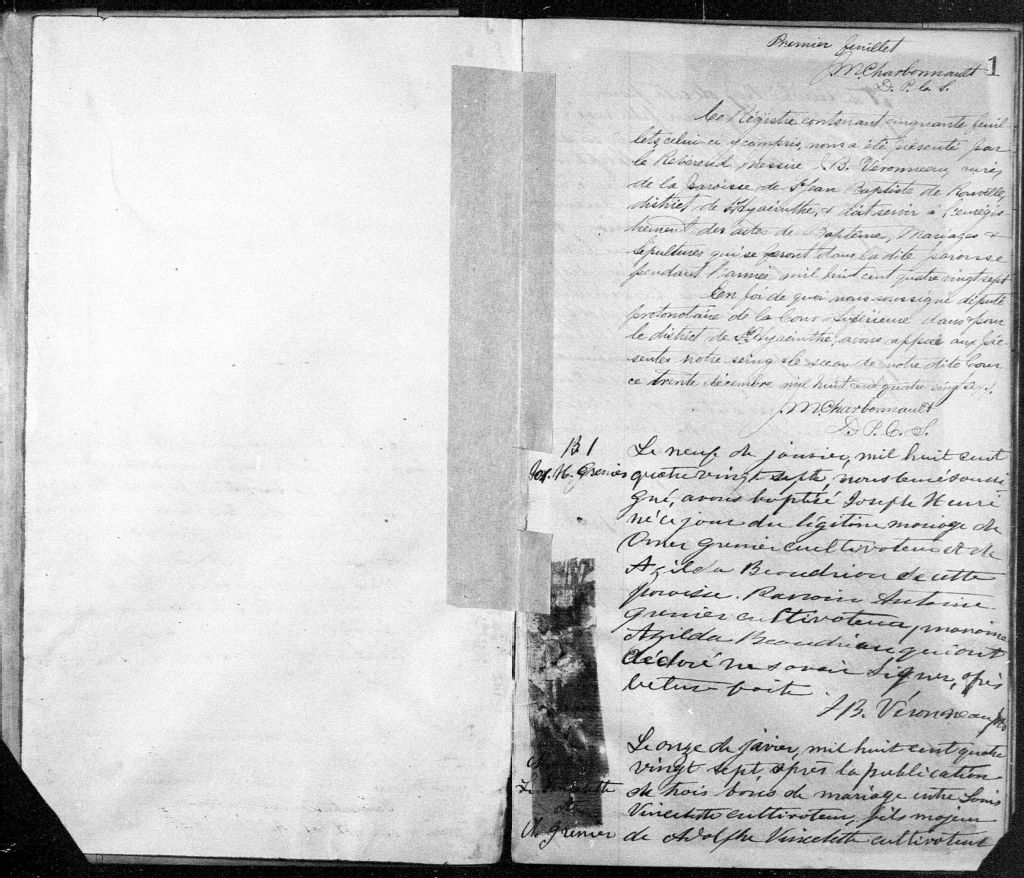 Premier feuillet
J M Charbonnault
D. P. C. S.
1
Ce Régistre contenant cinquante feuil-
lets, celui-ci y compris, nous a été présenté par
le Révérend Messire J. B. Véronneau, curé,
de la paroisse de St Jean Baptiste de Rouville,
district de St Hyacinthe, & doit servir à l'enrégis-
trement des actes de Baptême, Mariages &
Sépultures qui se feront dans la dite paroisse
pendant l'année mil huit cent quatre vingt sept
En foi de quoi nous soussigné député
protonotaire de la Cour Supérieure dans & pour
le district de St Hyacinthe, avons apposé aux pré-
sentes notre seing & le sceau de notre dite Cour
ce trente décembre mil huit cent quatre vingt six.
J M Charbonnault
D. P. C. S.
B 1
Jos. H. Grenier
Le neuf de janvier, mil huit cent
quatre vingt sept, nous curé soussi
gné, avons baptisé Joseph Henri
né ce jour du légitime mariage de
Omer Grenier cultivateur et de
Azilda Beaudriau de cette
paroisse. Parrain Antoine
Grenier cultivateur, marraine
Azilda Beaudriau qui ont
déclaré ne savoir signer, après
lecture faite.
J B. Véronneau Ptre
L. Vincelette
&
A. Grenier
Le onze de javier, mil huit cent quatre
vingt sept, après la publication
de trois bans de mariage entre Louis
Vincelette cultivateur, fils majeur
de Adolphe Vincelette cultivateur